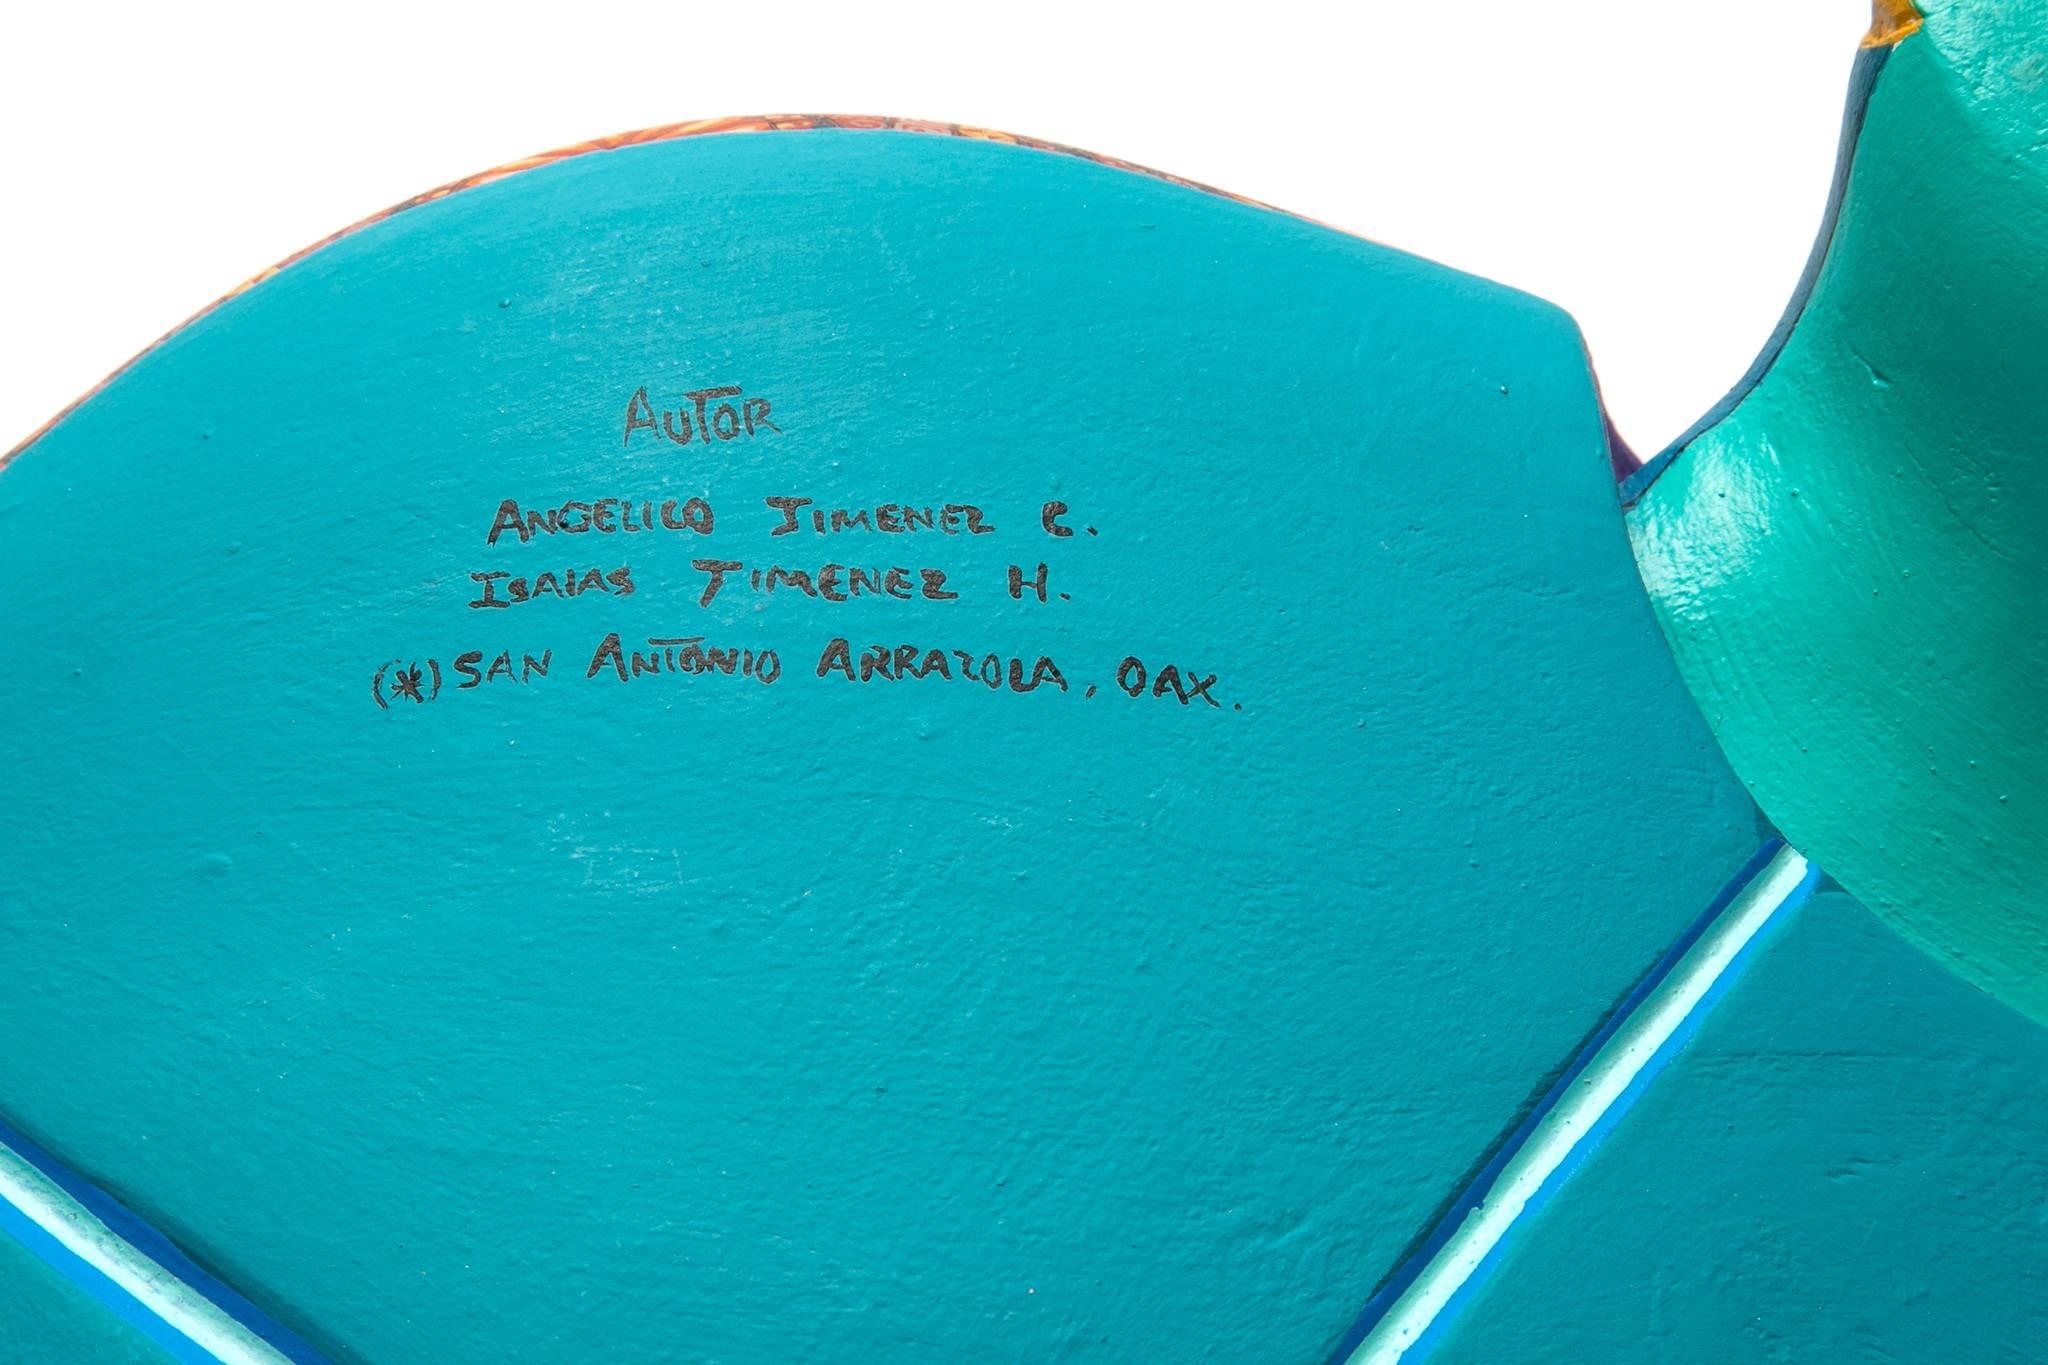 AUTOR
ANGELICO JIMENEZ C.
ISAIAS JIMENEZ H.
(*) SAN ANTONIO ARRAZOLA, OAX.